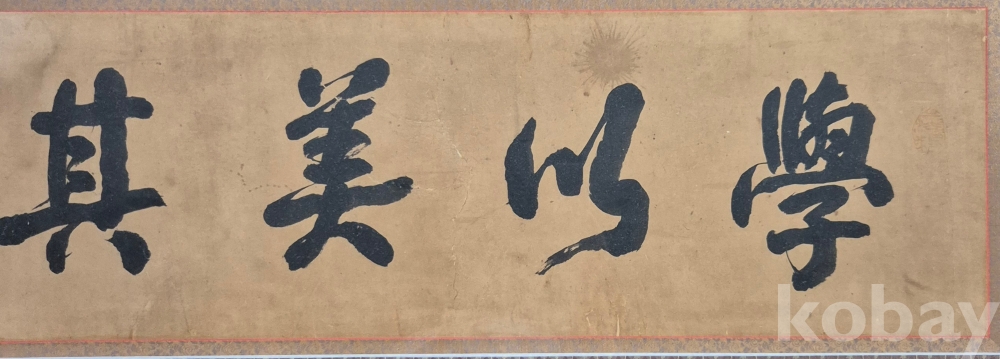 學以美其
kobay